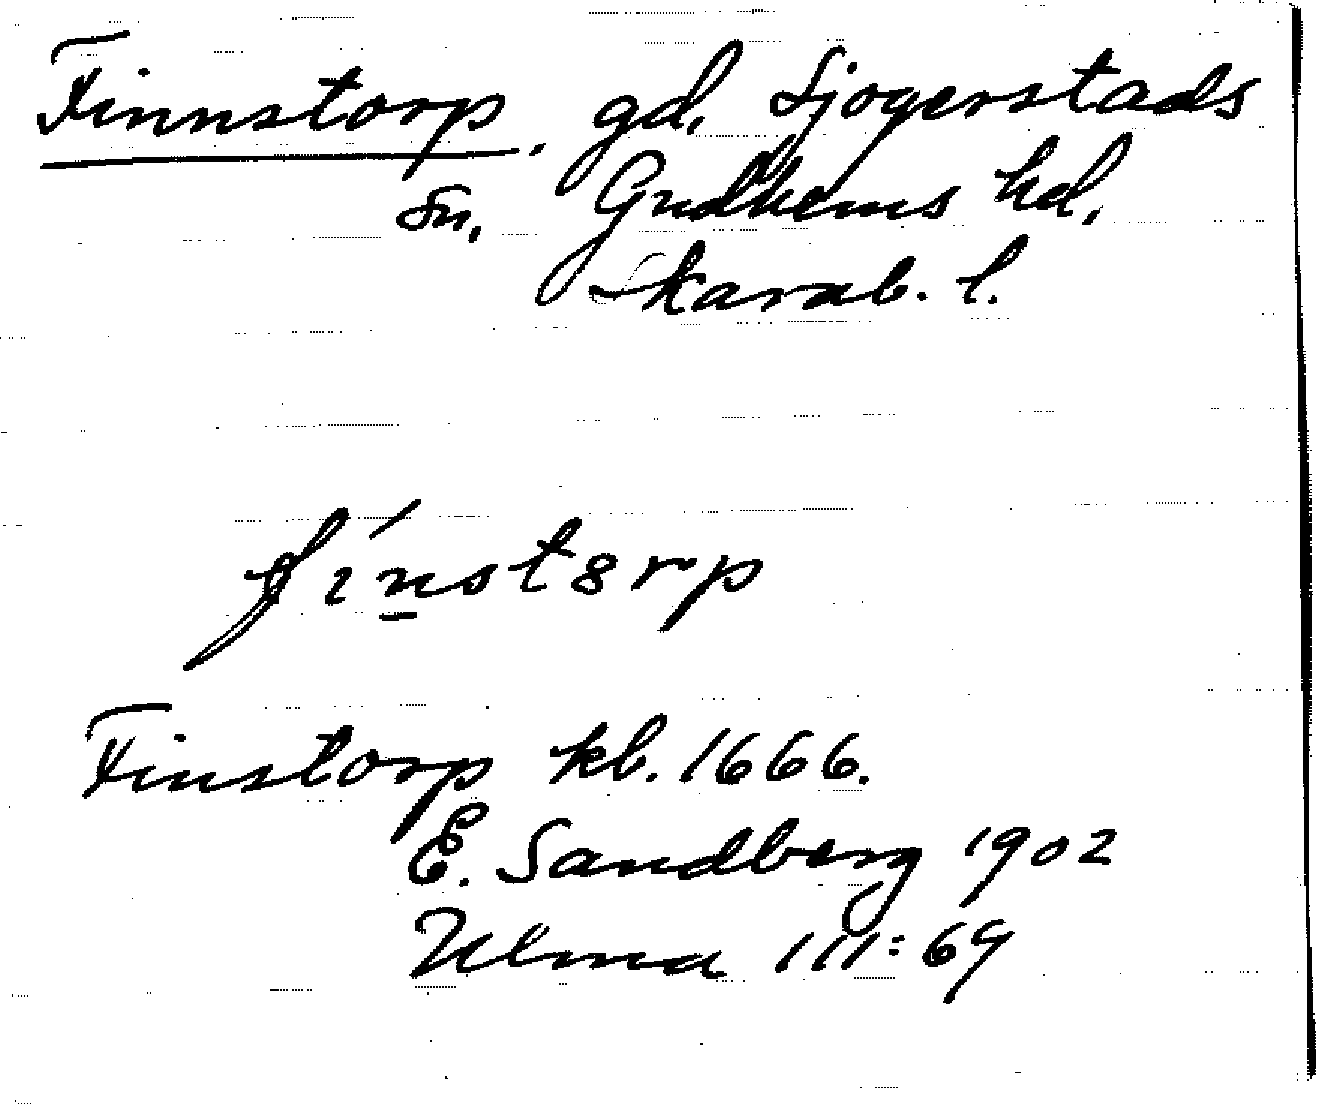 Finnstorp, gd, Sjogerstads
sn, Gudhems hd,
Skarab. l.
fínst8rp
Finstorp kb. 1666.
E. Sandberg 1902
Ulma 111:69